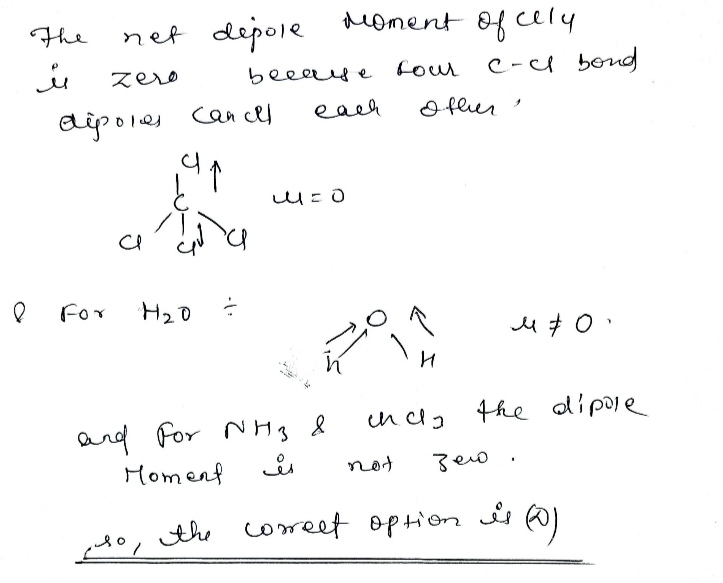 The net dipole Moment of CCl4
is zero because four C-Cl bond
dipoles cancel each other,
Cl
C
μ = 0
Cl Cl Cl
& For H2O ÷
O
μ ≠ 0.
H H
and for NH3 & CHCl3 the dipole
Moment is not zero.
so, the correct option is